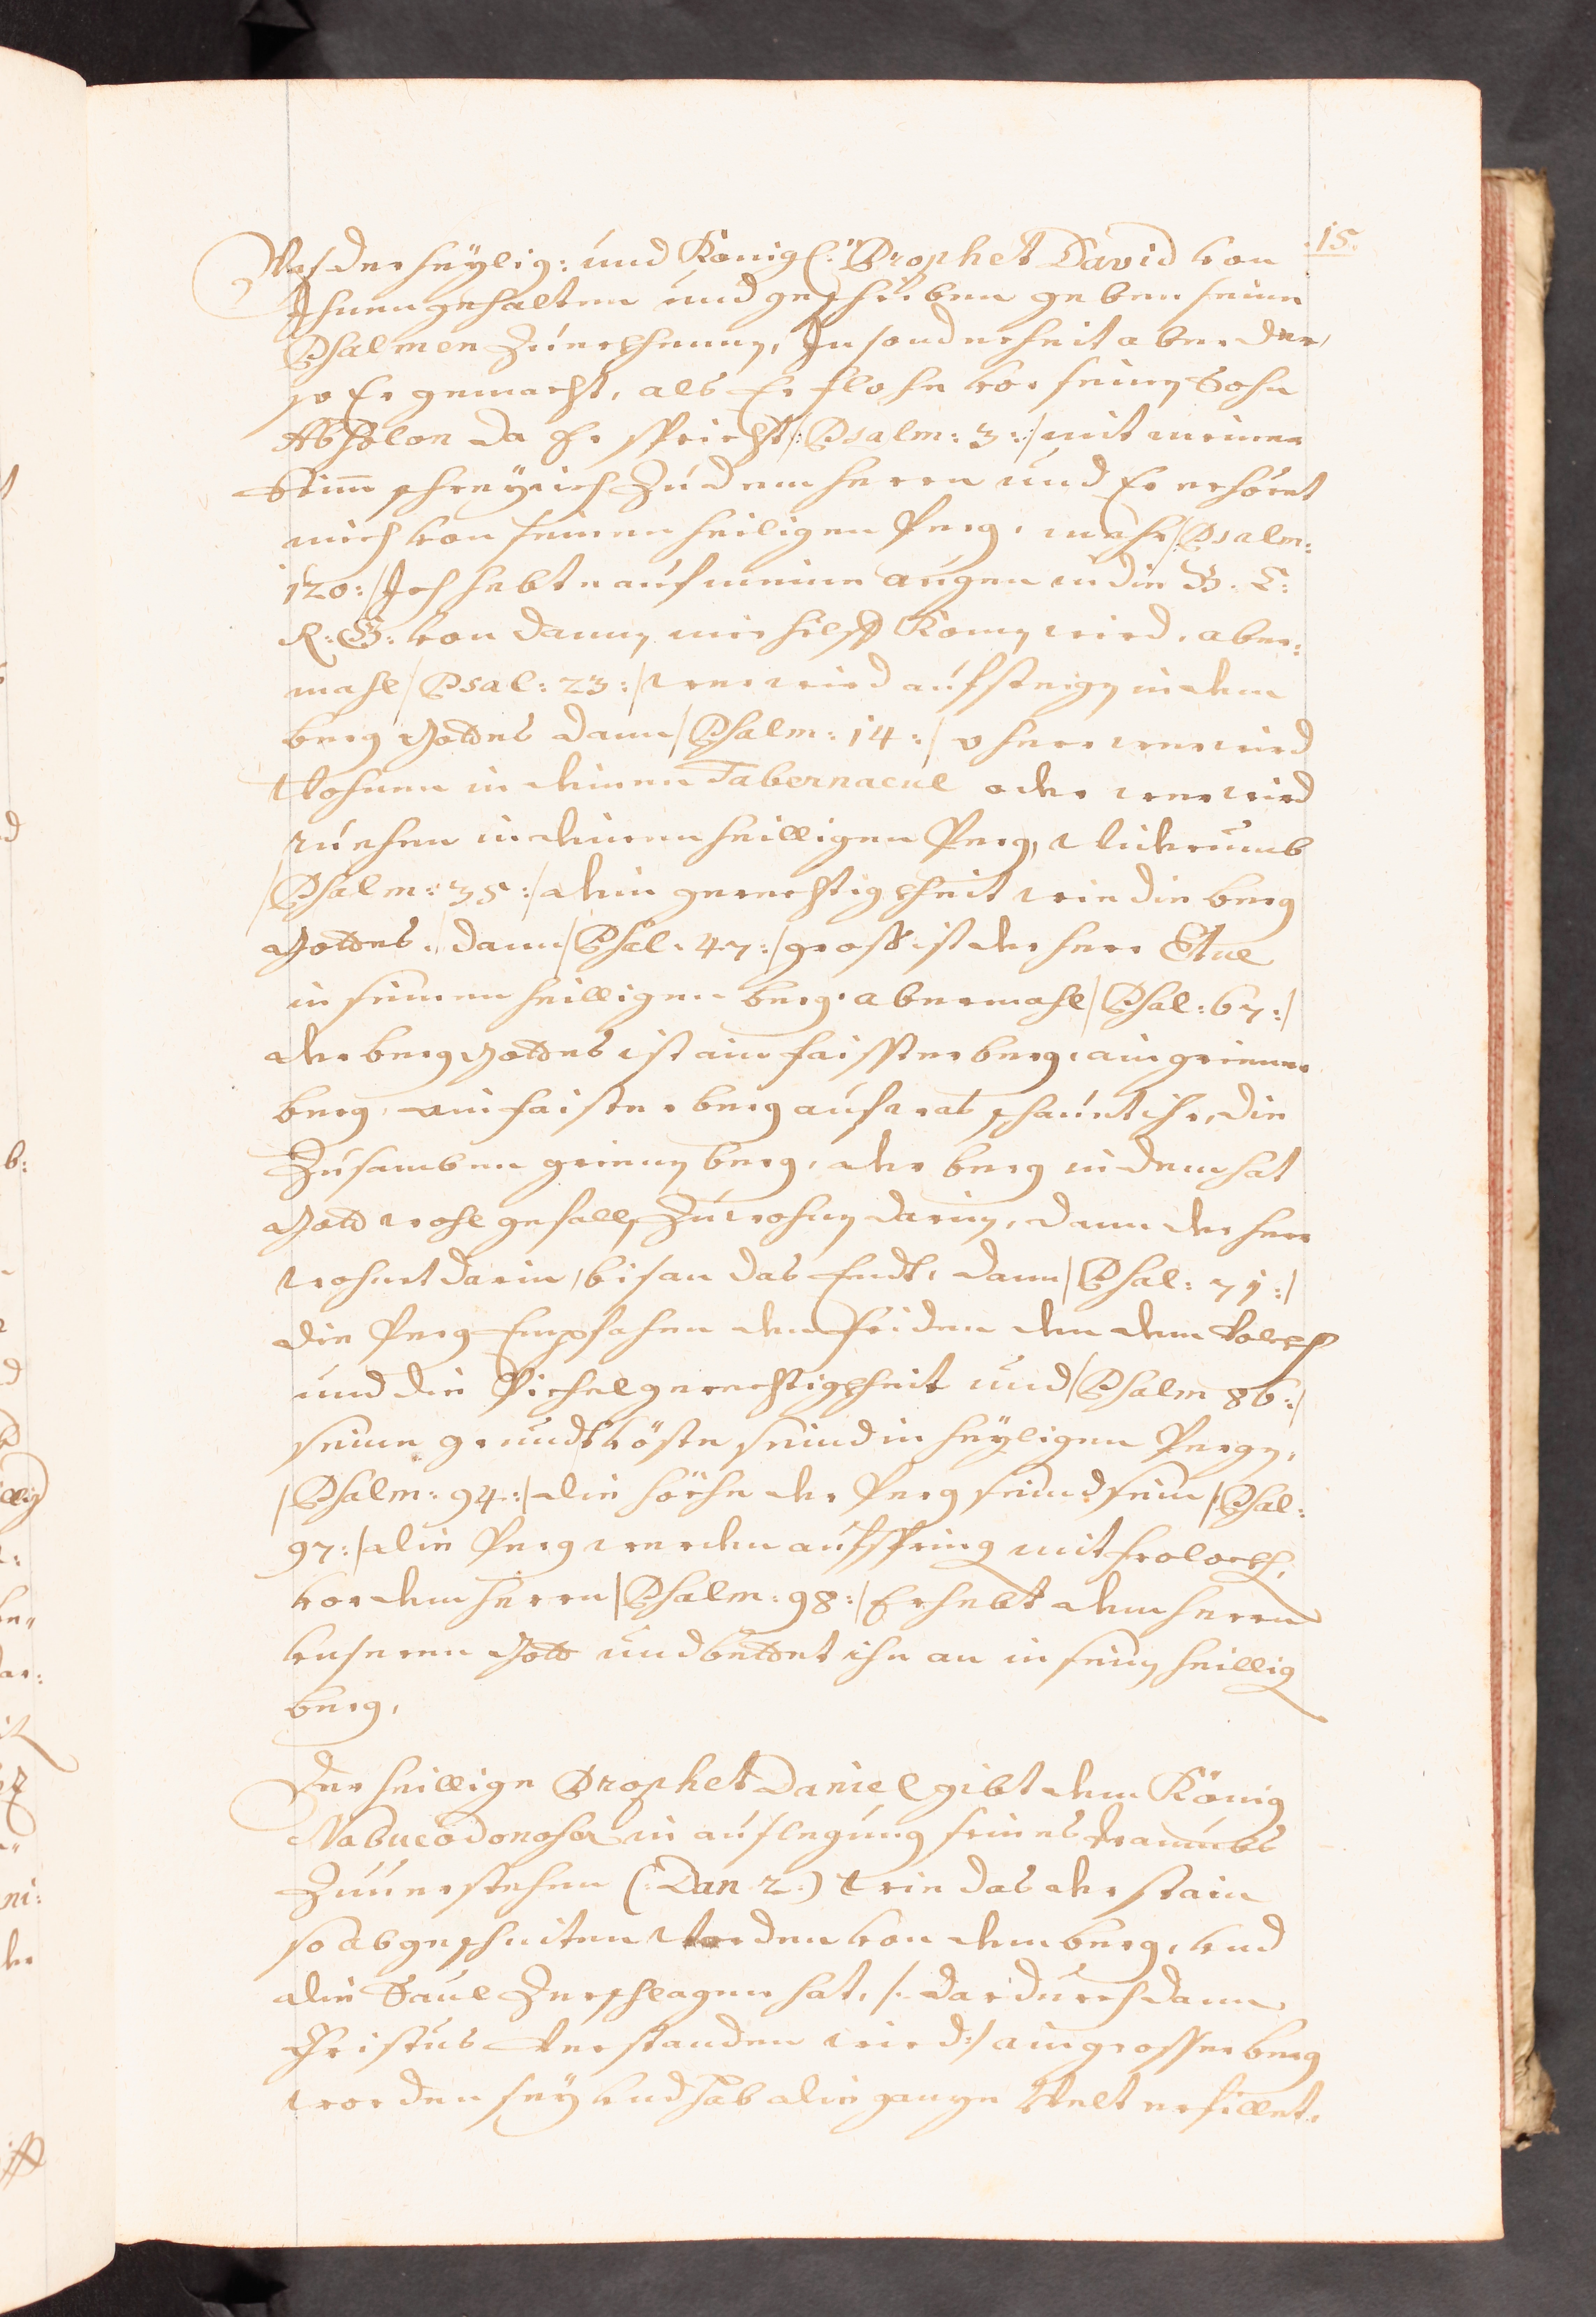 15.
Was der heÿlig: und Königl: Prophet David von
Ihnen gehalten und geschriben geben seine
Psalmen zúerkhenen, In sonderheit aber der,
so Er gemacht, als Er flohe vor seinen Sohn
Absolon da Er spricht /: Psalm: 3: / mit meiner
Stim̄ schreÿ ich zú dem herrn und Er erhöret
mich von seinem heiligen Perg, mehr / Psalm:
120: / Ich hebte auf meine augen in die B. E:
R: G: von danen mir hilff komen wird, aber:
mahl / Psal: 23: / wer wird aufsteigen in dem
berg Gottes dann / Psalm: 14: / o herr wer wird
wohnen in deinem Tabernacul oder wer wird
ruehen in deinem heilligen Perg, widerumb
/ Psalm: 35: / dein gerechtigkheit wie die berg
Gottes, dann / Psal: 47: / gross ist der herr Etc
in seinem heilligen berg. abermahl / Psal: 67: /
der berg Gottes ist ain faisster berg, ain grienner
berg, ain faister berg auf was schauet ihr, die
zusamben grienen berg, der berg in dem hat
Gott wohlgefallen zúwohnen darin, dann der herr
wohnet darin, bis an das Endt, dann / Psal: 71: /
die Perg Empfahen den friden den dem Volckh
und die Pichel gerechtigkheit und / Psalm 86: /
seine grundtvöste seind in heÿligen Pergen,
/ Psalm: 94: / die höche der Perg seind sein / Psal:
97: / die Perg werden aufspring mit frolockh,
vor dem herrn / Psalm: 98: / Erhebt den herrn
unseren Gott und bettet ihn an in seinen heillig
berg,
Der heillige Prophet Daniel gibt dem König
Nabucodonosor in auslegung seines Traumbs
zúuerstehen (: Dan 2:) wie das der stain
so abgeschniten worden von dem berg, und
die Saúl zerschlagen hat, /: dardurch dann
Christus verstanden wird :/ ain grosser berg
worden seÿ und hab die ganze Welt erfillet.